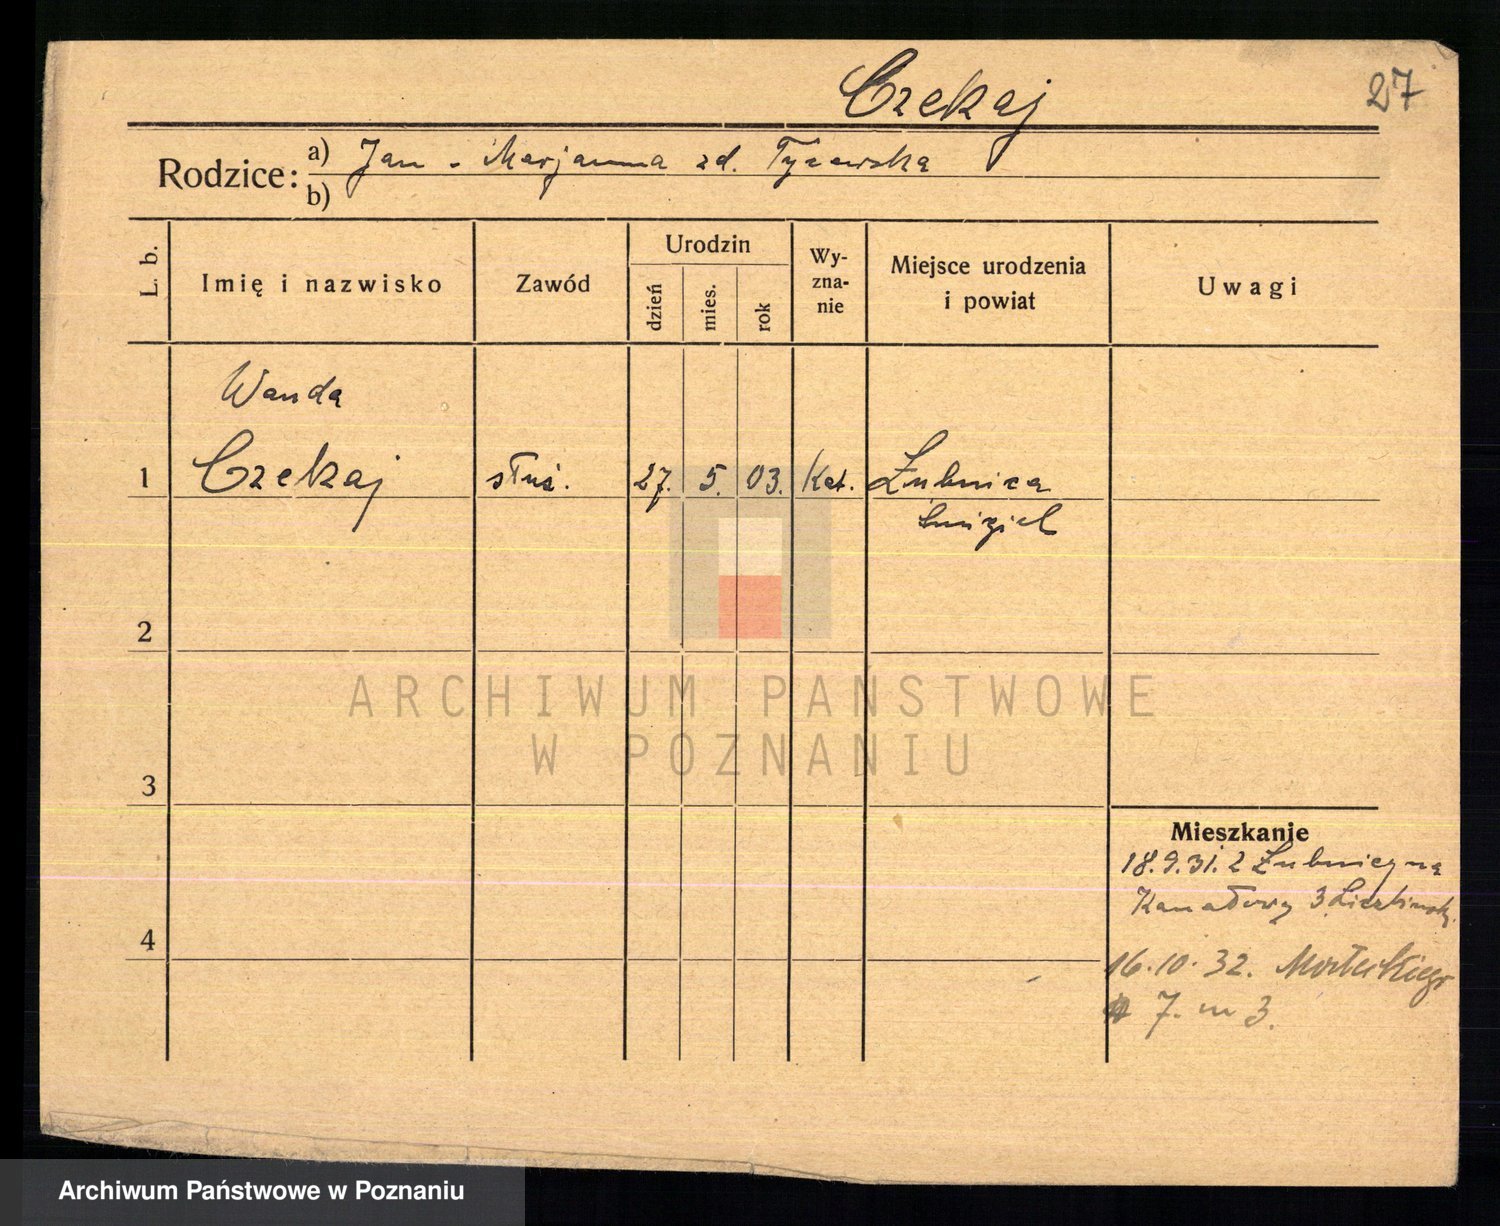 Czekaj
27
Rodzice:
a) Jan - Marjanna zd. Tyczewska
b)
L. b.
Imię i nazwisko
Zawód
Urodzin
dzień
mies.
rok
Wy-
zna-
nie
Miejsce urodzenia
i powiat
Uwagi
Wanda
1 Czekaj służ. 27. 5. 03. Kat. Żubnica
Śmigiel
2
ARCHIWUM PAŃSTWOWE
W POZNANIU
3
Mieszkanie
18.9.31. z Żubnicy na
Kanałowy 3
4
16.10.32.
7. m 3.
Archiwum Państwowe w Poznaniu